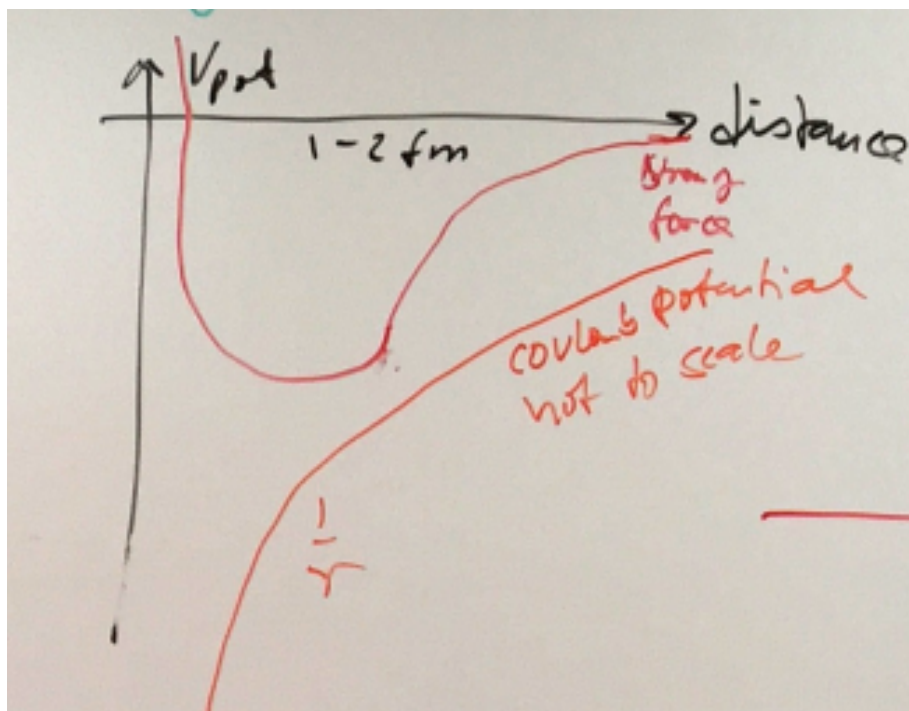 Vpot
distance
1-2 fm
strong
force
coulomb potential
not to scale
1
r